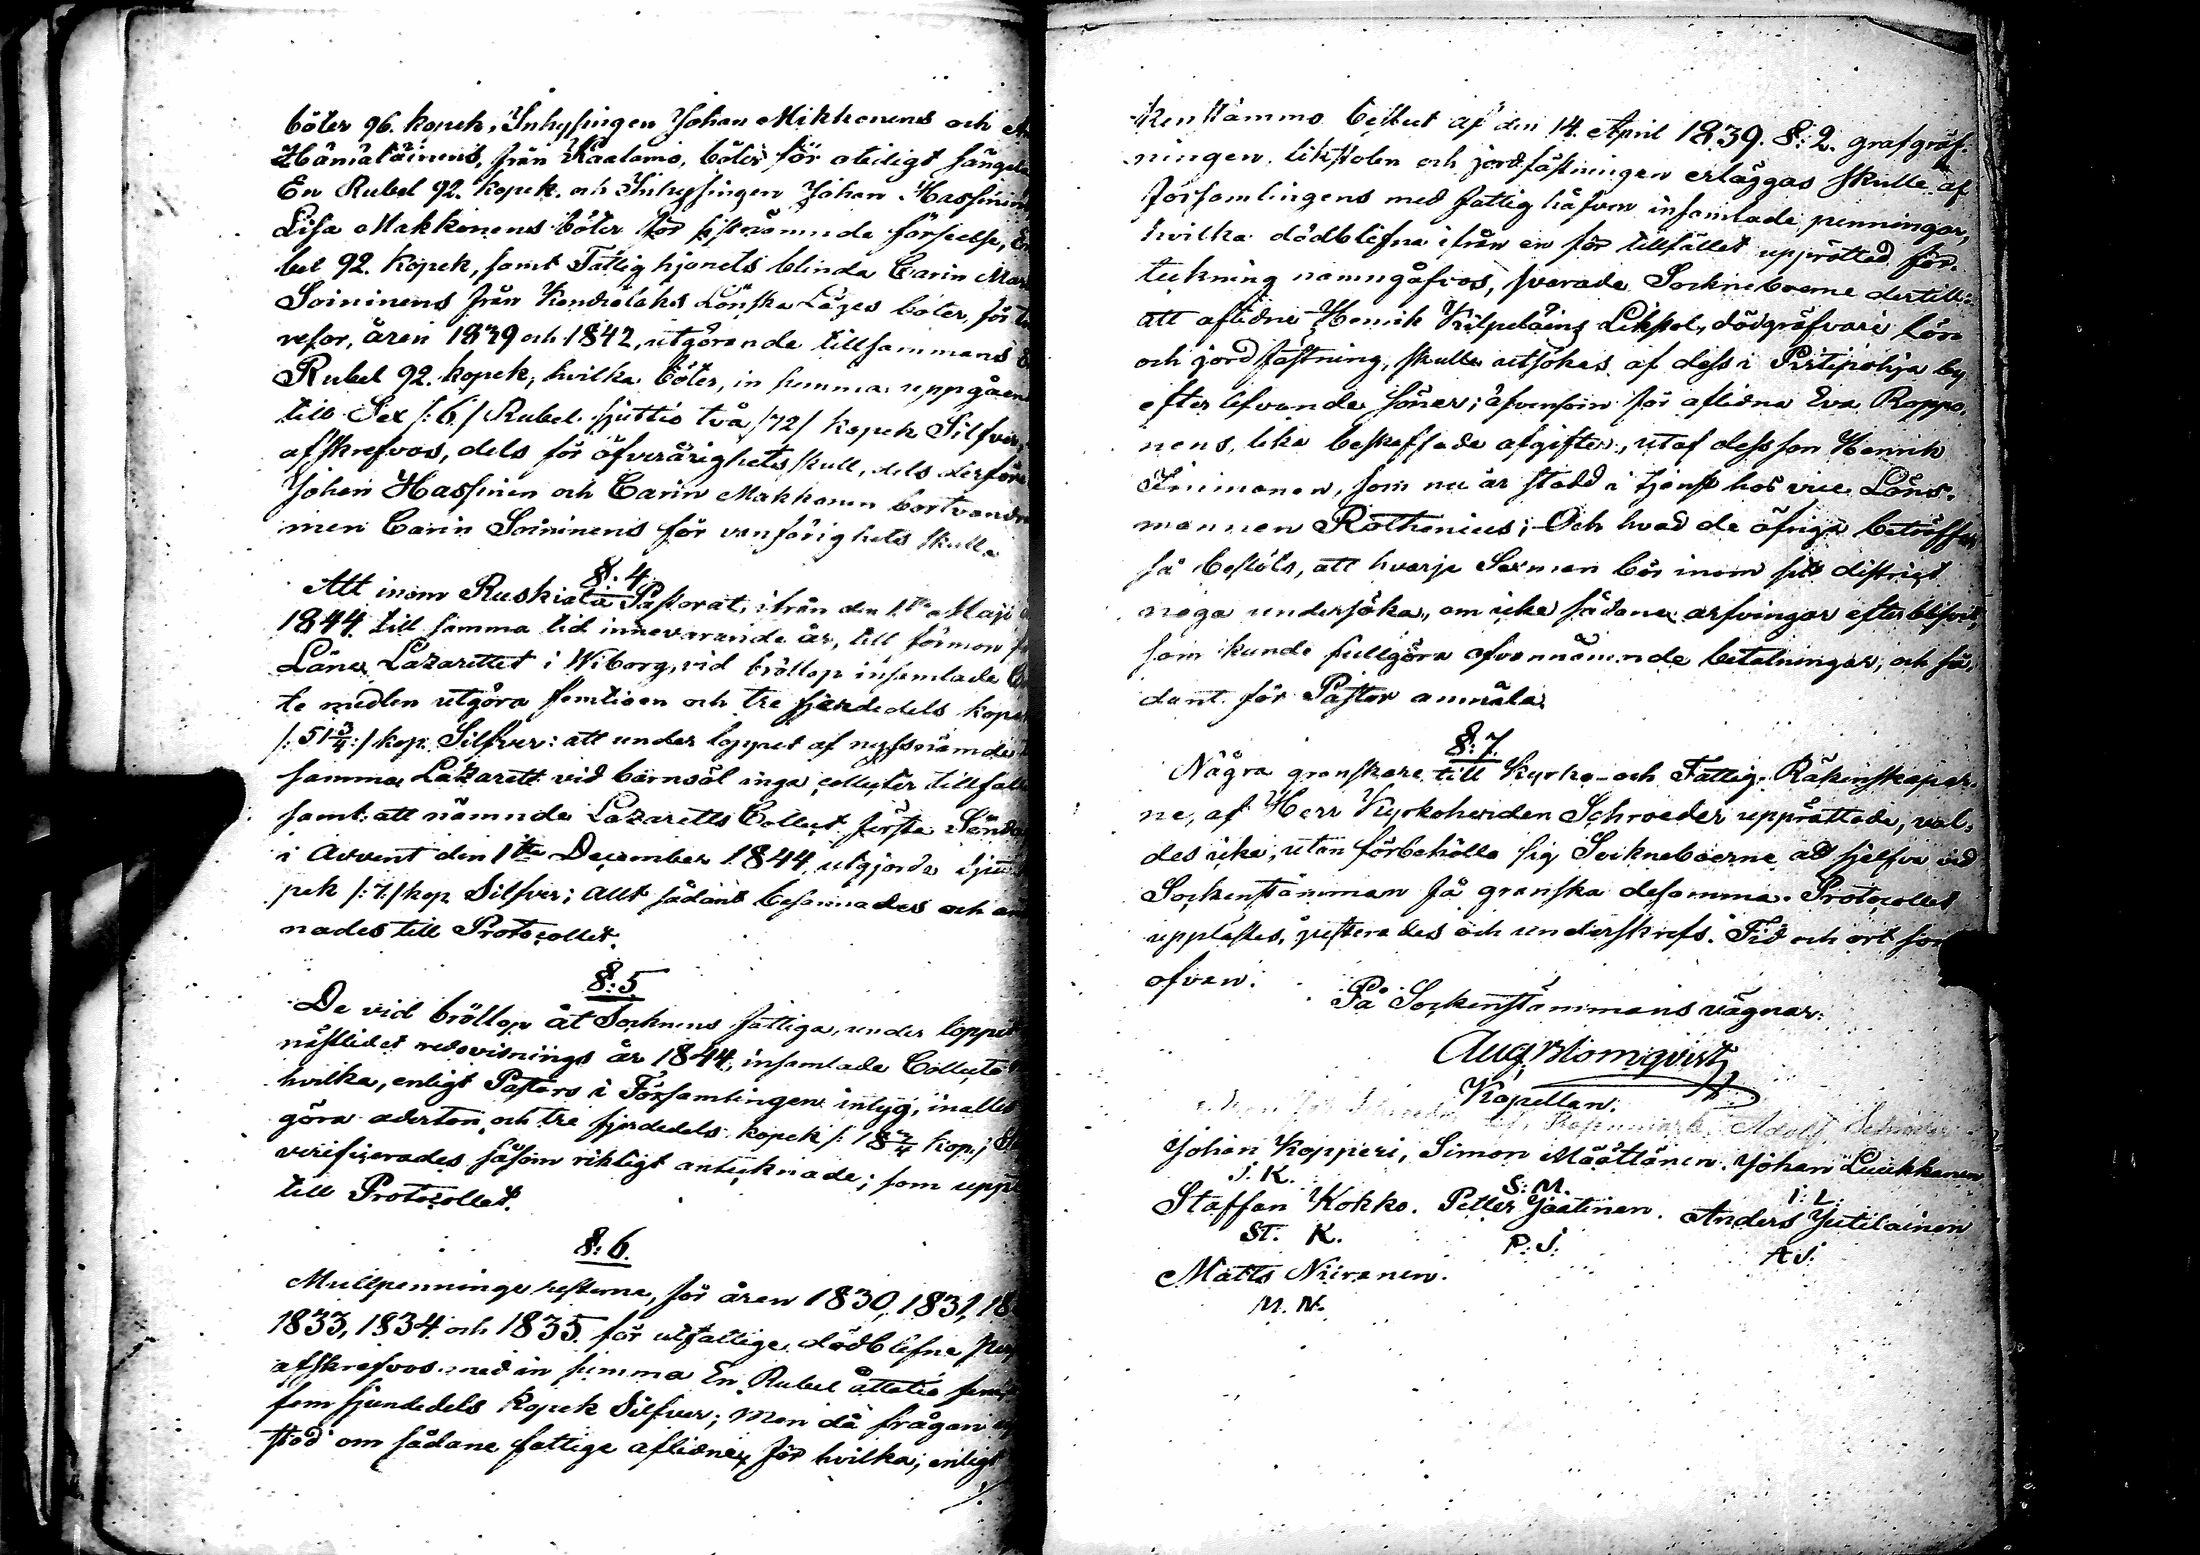 böter 96. kopek, Inhysingen Johan Mikkonens och
Hämäläinens, från Kaalamo, böter för otidigt sängela
En Rubel 92. kopek. och Inhysingen Johan Hassinen
Lisa Makkonens böter för sistnämnde förseelse, En
bel 92. kopek, samt Fattighjonets blinda Carin Mar
Soininens från Kondiolaks Lönska Läges böter, för
resor, åren 1839 och 1842, utgörande tillsammans
Rubel 92. kopek, hvilka böter, in summa uppgåen
till Sex /:6/ Rubel sjuttio två /72/ kopek Silfver,
afskrefvos, dels för öfverårighets skull, dels derföre
Johan Hassinen och Carin Makkonen bortvandr
men Carin Soininens för vanförighets skulle
§. 4
Att inom Ruskiala Pastorat, ifrån den 1ta Maji
1844 till samma tid innevarande år, till förmon
Läne Lazarettet i Wiborg, vid bröllop insamlade
te medlen utgöra femtioen och tre fjerdedels kopek
/:51 3/4:/ kop. Silfver: att under loppet af nyssnämde
samma Lazarett vid barnsöl inga collecter tillfall
samt att nämnde Lazaretts Collect förste Sönda
i Advent den 1ta December 1844, utgjorde sju
pek /:7./ kop Silfver; Allt sådant besannades och an
nades till Protocollet.
§: 5
De vid bröllop åt Socknens fattiga, under loppet
nästledet redovisnings år 1844, insamlade Collecte
hvilka, enligt Pastors i Församlingen intyg, inalles
göra aderton och tre fjerdedels kopek /: 18 3/4 kop.
verifierades såsom riktigt antecknade; som uppt
till Protocollet.
§: 6.
Mullpenninge resterne, för åren 1830, 1831, 18
1833, 1834 och 1835 för utfattige dödblefne
afskrefvos med in summa En Rubel åttatio fem
fem sjundedels kopek Silfver; Men då frågan
stod om sådane fattige aflidne, för hvilka, enligt
kenstämmo beslut af den 14. April 1839. §: 2. grafgräf-
ningen, likstolen och jordfästningen erläggas skulle af
församlingens med fattighåfven insamlade penningar,
hvilka dödblefne ifrån en för tillfället upprättad för-
teckning namngåfvos, svarade Sockneboerne dertill:
att aflidne Henrik Kilpeläins Likstol, dödgräfvare lön
och jordfästning, skulle utsökas af dess i Pirtipohja by
efterlefvande söner; äfvensom för aflidna Eva Roppo-
nens, lika beskaffade afgifter, utaf dess son Henrik
Immonen, som nu är stadd i tjenst hos vice Läns-
mannen Rothenius; Och hvad de öfriga beträffar
så beslöts, att hvarje Sexman bör inom sitt district
noga undersöka, om icke sådane arfvingar efterblifvit,
som kunde fullgöra ofvannämnde betalningar, och så-
dant för Pastor anmäla.
§: 7.
Några granskare till Kyrko- och Fattig-Räkenskaper-
ne, af Herr Kyrkoherden Schroeder upprättade, val-
des icke, utan förbehöllo sig Sockneboerne att sjelfve vid
Sockenstämman få granska desamma. Protocollet
upplästes, justerades och underskrefs. Tid och ort som
ofvan.
På Sockenstämmans vägnar:
Aug. Blomqvist
Kapellan.
Adolf Schröder
Johan Kopperi, Simon Määttänen. Johan Luukkanen
J. K. S: M. I: L
Staffan Kokko. Petter Jaatinen. Anders Jutilainen
ST. K. P: J. A J.
Matts Niiranen.
M. N.